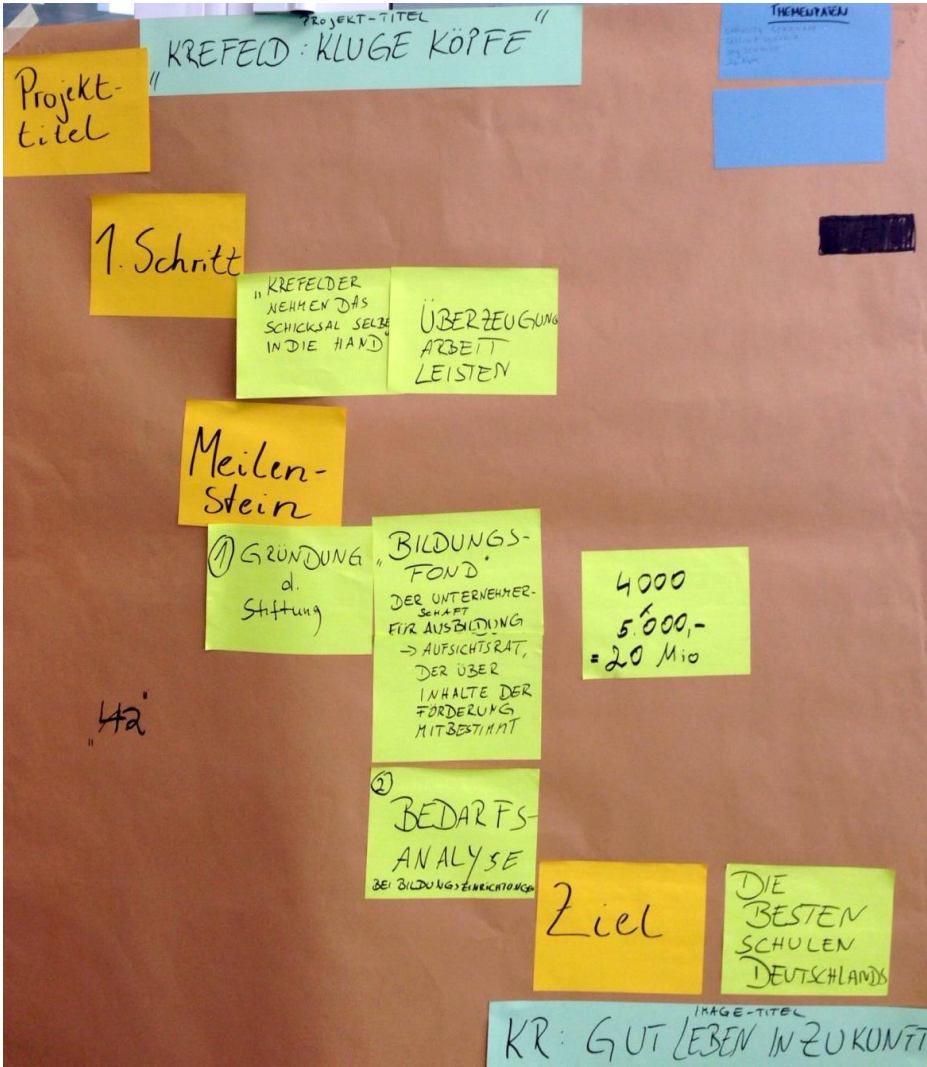 PROJEKT-TITEL
„KREFELD: KLUGE KÖPFE“
THEMENPATEN
Projekt-
titel
1. Schritt
„KREFELDER
NEHMEN DAS
SCHICKSAL SELBE
IN DIE HAND
ÜBERZEUGUNG
ARBEIT
LEISTEN
Meilen-
stein
① GRÜNDUNG
d.
Stiftung
„BILDUNGS-
FOND“
DER UNTERNEHMER-
SCHAFT
FÜR AUSBILDUNG
→ AUFSICHTSRAT,
DER ÜBER
INHALTE DER
FÖRDERUNG
MITBESTIMMT
4000
x
5.000,-
= 20 Mio
„42“
②
BEDARFS-
ANALYSE
BEI BILDUNGSEINRICHTUNGEN
Ziel
DIE
BESTEN
SCHULEN
DEUTSCHLANDS
IMAGE-TITEL
KR: GUT LEBEN IN ZUKUNFT